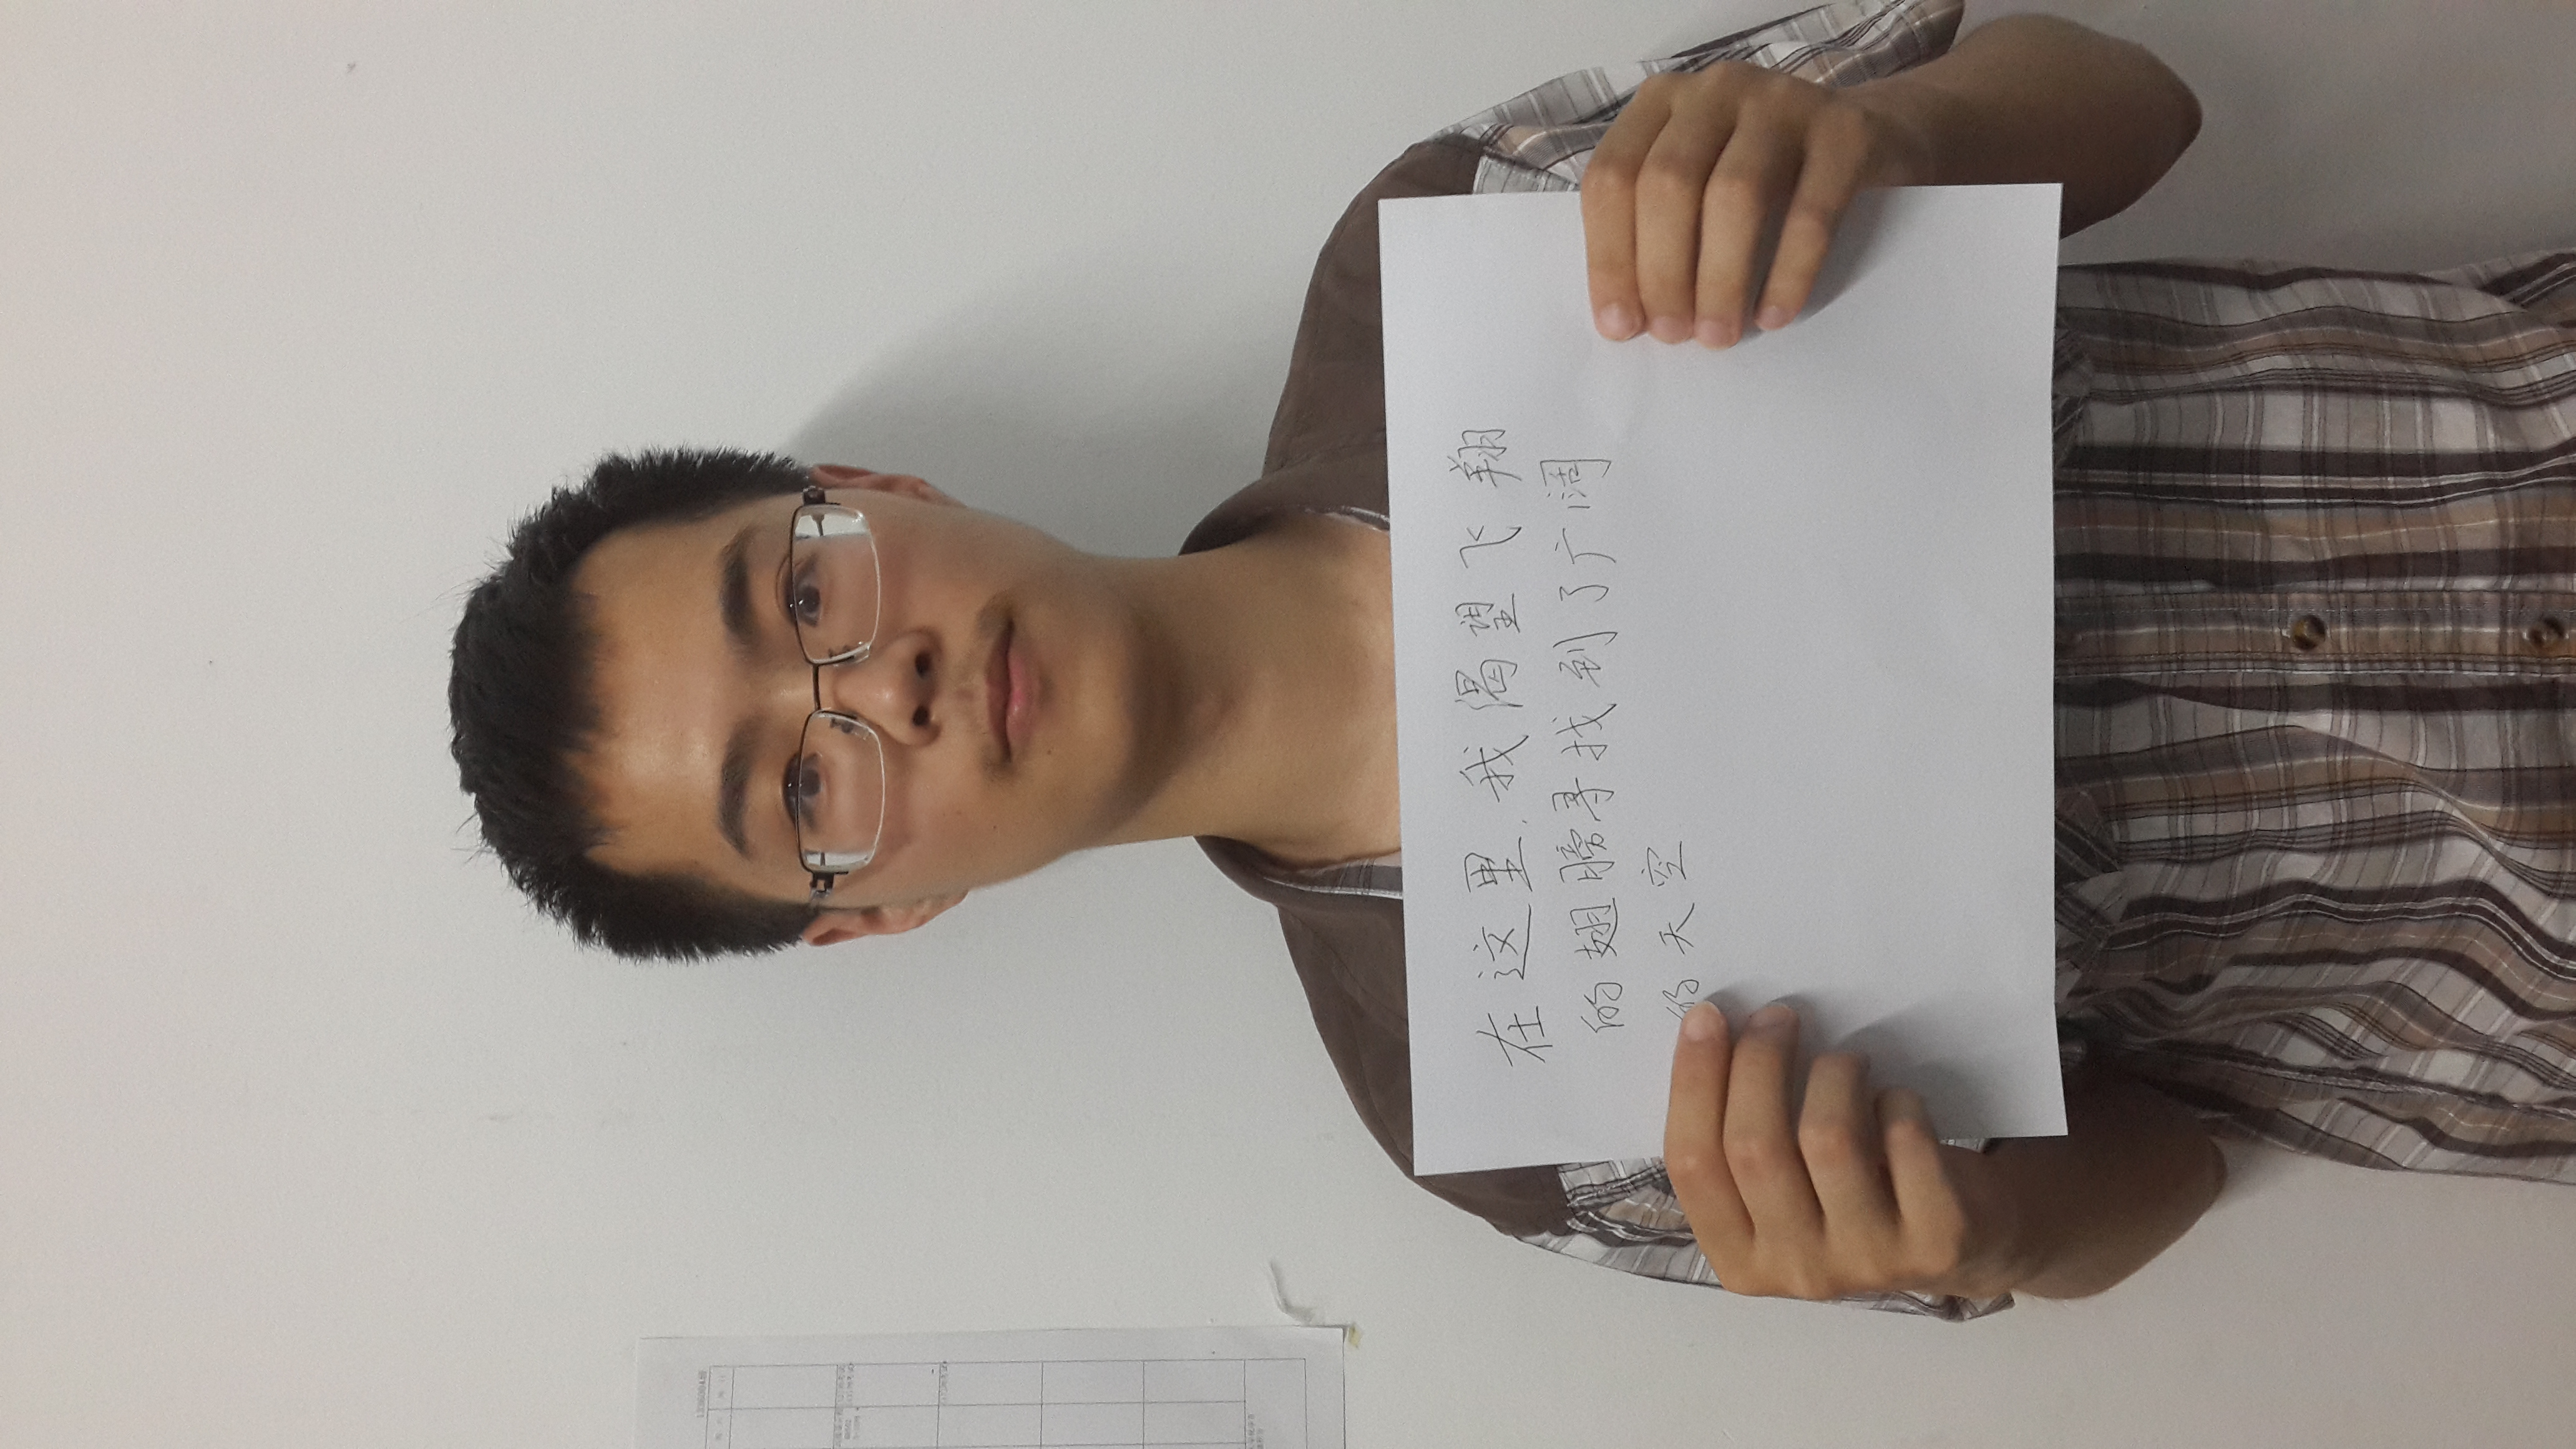 在这里,我渴望飞翔
的翅膀寻找到了广阔
的天空